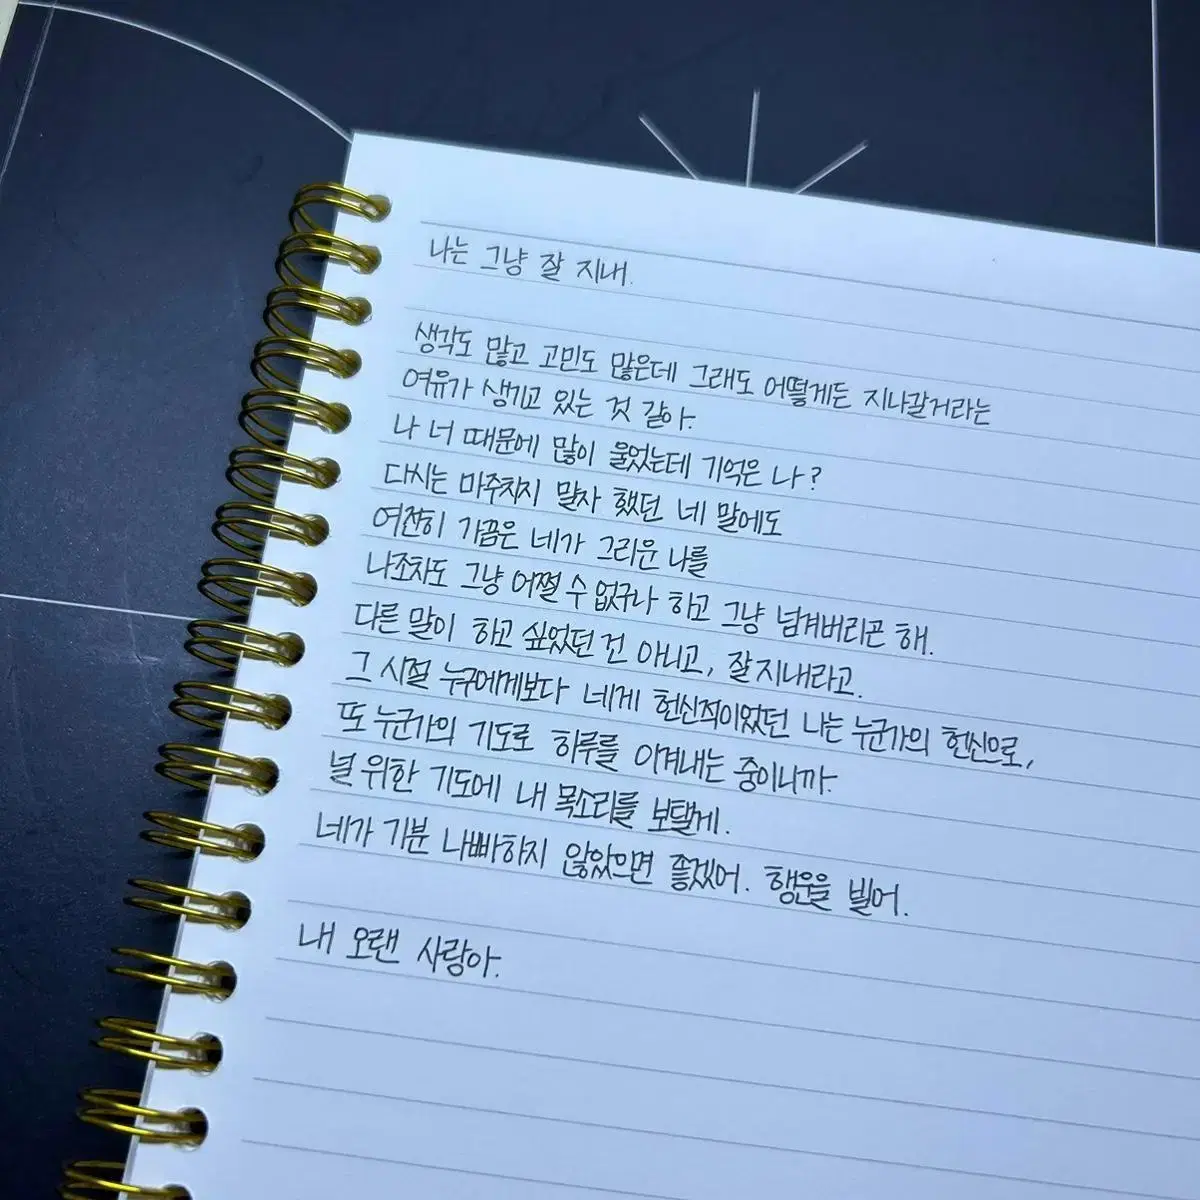 나는 그냥 잘 지내.
생각도 많고 고민도 많은데 그래도 어떻게든 지나갈거라는
여유가 생기고 있는 것 같아.
나 너 때문에 많이 울었는데 기억은 나?
다시는 마주치지 말자 했던 네 말에도
여전히 가끔은 네가 그리운 나를
나조차도 그냥 어쩔 수 없구나 하고 그냥 넘겨버리곤 해.
다른 말이 하고 싶었던 건 아니고, 잘 지내라고.
그 시절 누구에게보다 네게 헌신적이었던 나는 누군가의 헌신으로,
또 누군가의 기도로 하루를 이겨내는 중이니까.
널 위한 기도에 내 목소리를 보탤게.
네가 기분 나빠하지 않았으면 좋겠어. 행운을 빌어.
내 오랜 사랑아.